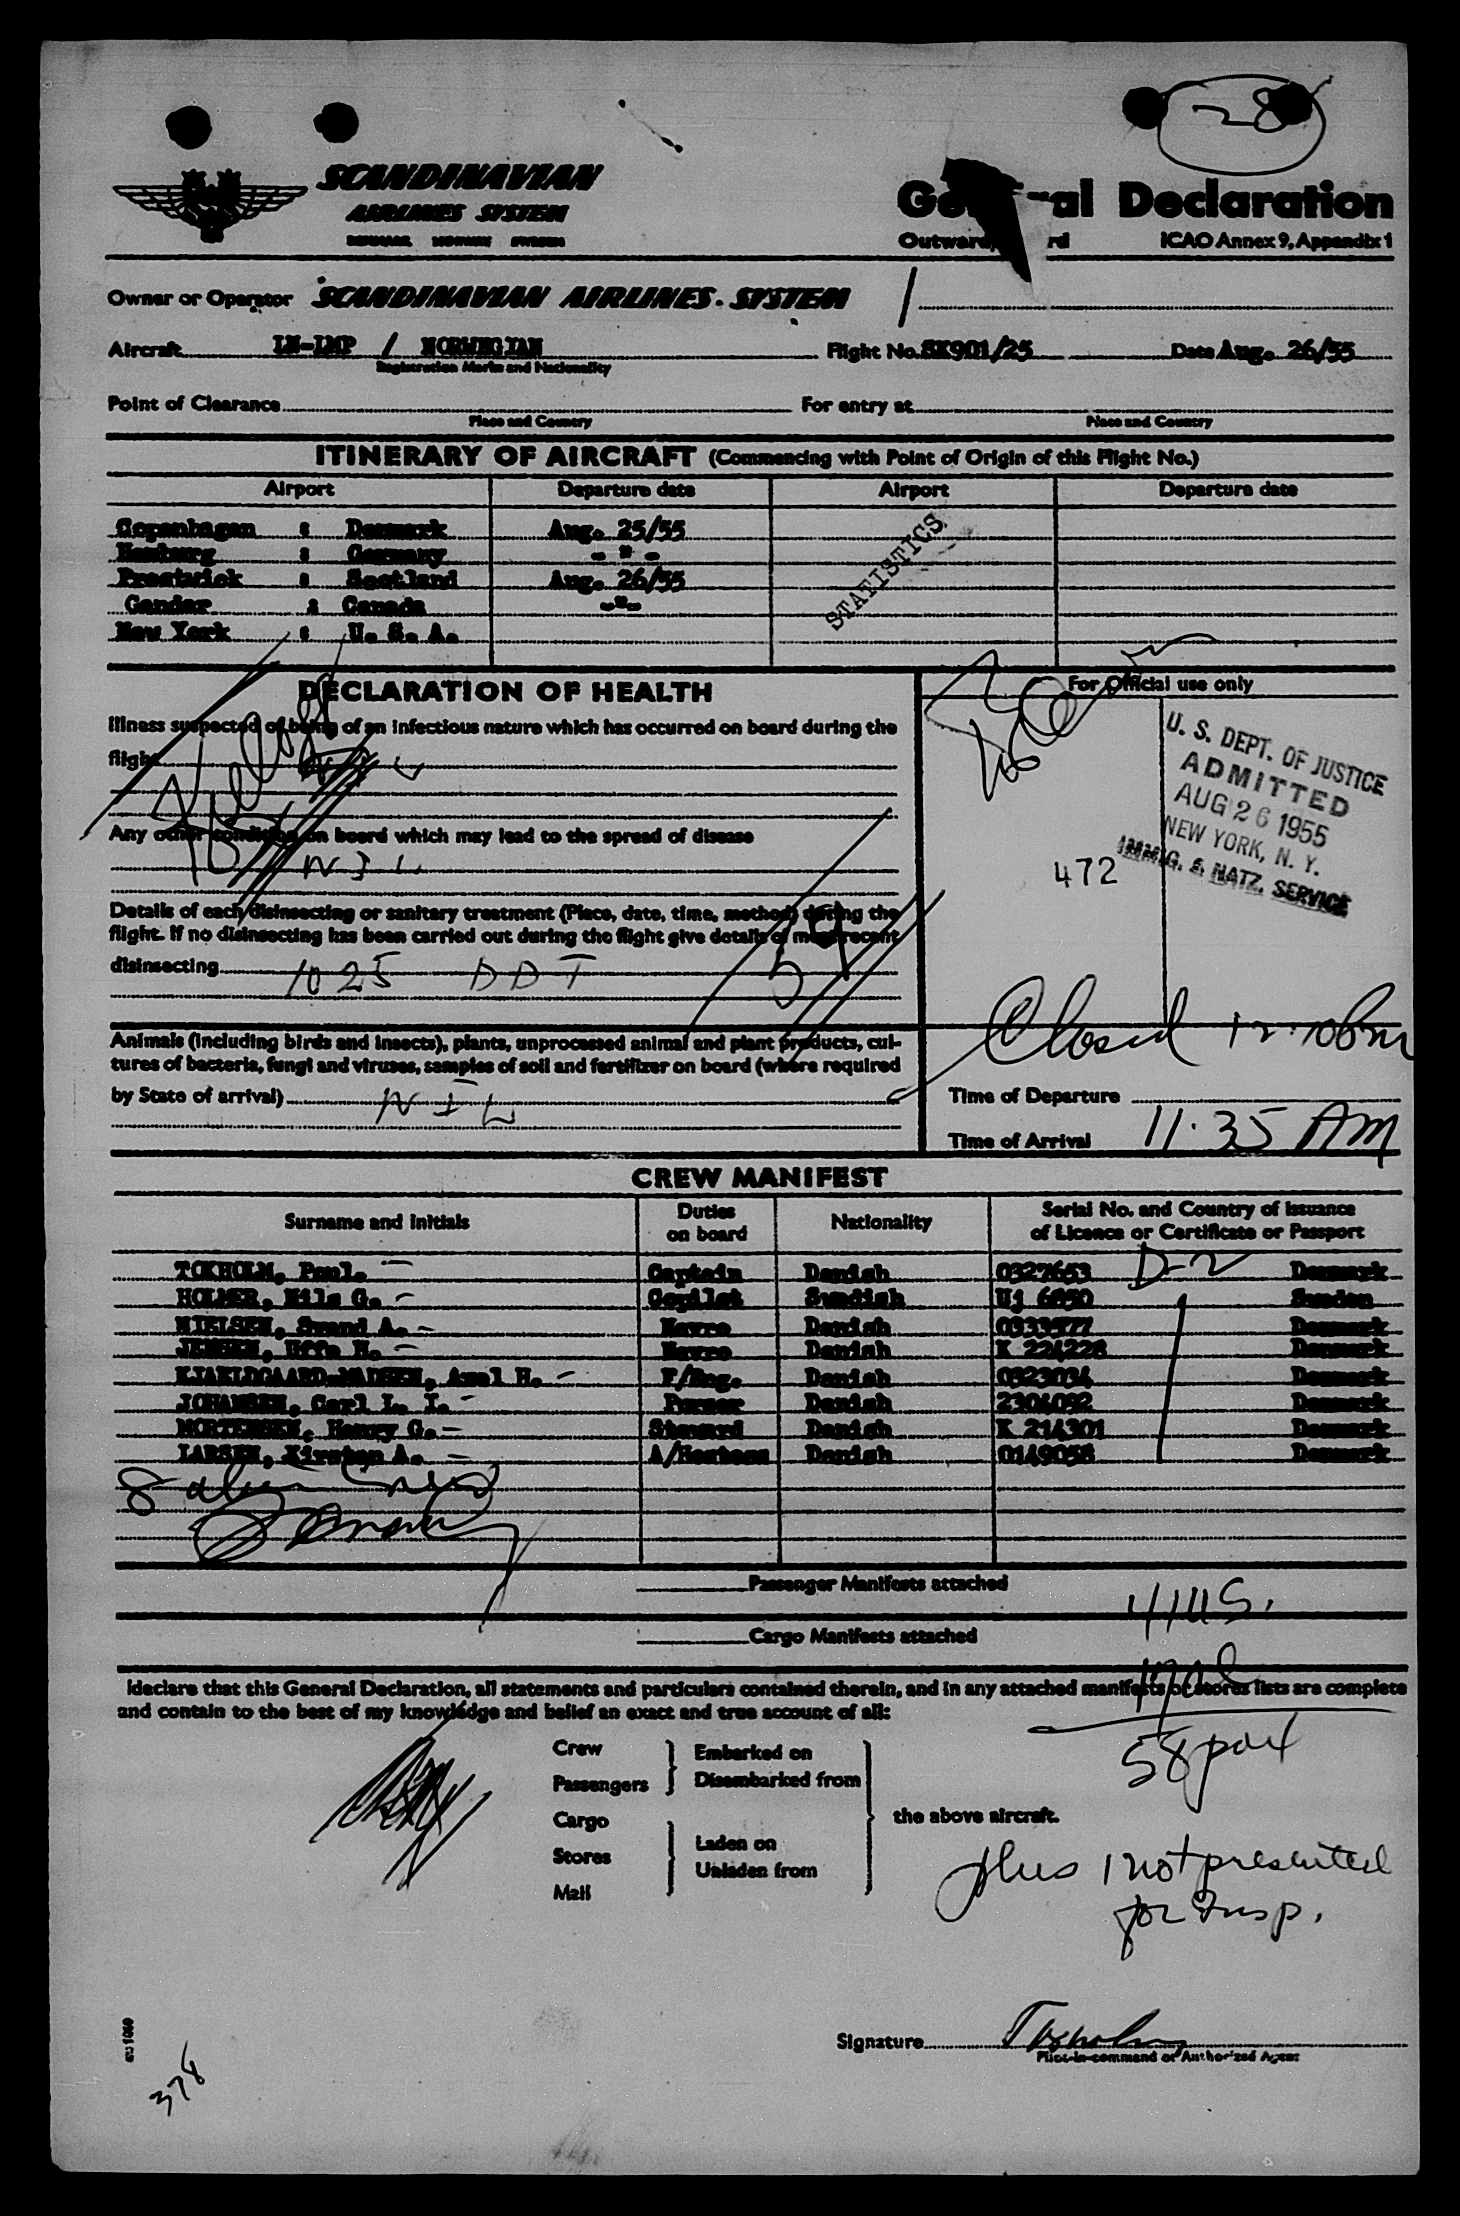 28
SCANDINAVIAN
AIRLINES SYSTEM
DENMARK NORWAY SWEDEN
General Declaration
Outward/ rd ICAO Annex 9, Appendix 1
Owner or Operator SCANDINAVIAN AIRLINES SYSTEM
Aircraft LN-LMP / NORWEGIAN Flight No. SK901/25 Date Aug. 26/55
Registration Marks and Nationality
Point of Clearance For entry at
Place and Country Place and Country
ITINERARY OF AIRCRAFT (Commencing with Point of Origin of this Flight No.)
Airport Departure date Airport Departure date
Copenhagen : Denmark Aug. 25/55
Hamburg : Germany - " -
Prestwick : Scotland Aug. 26/55
Gander : Canada -"-
New York : U. S. A.
STATISTICS
DECLARATION OF HEALTH
Illness suspected of being of an infectious nature which has occurred on board during the
flight NIL
Any other condition on board which may lead to the spread of disease
NIL
Details of each disinsecting or sanitary treatment (Place, date, time, method) during the
flight. If no disinsecting has been carried out during the flight give details of most recent
disinsecting 1025 DDT
Animals (including birds and insects), plants, unprocessed animal and plant products, cul-
tures of bacteria, fungi and viruses, samples of soil and fertilizer on board (where required
by State of arrival) NIL
For Official use only
U. S. DEPT. OF JUSTICE
ADMITTED
AUG 26 1955
NEW YORK, N. Y.
IMMIG. & NATZ. SERVICE
472
Closed 12:10 Pm
Time of Departure
Time of Arrival 11.35 AM
CREW MANIFEST
Surname and initials Duties on board Nationality Serial No. and Country of issuance of Licence or Certificate or Passport
TOXHOLM, Poul. Captain Danish 0327653 D-2 Denmark
HOLMER, Nils G. Copilot Swedish Uj 6850 Sweden
NIELSEN, Svend A. Navro Danish 0333577 Denmark
JENSEN, Uffe H. Navro Danish K 224228 Denmark
KJAELDGAARD-MADSEN, Axel H. F/Eng. Danish 0323034 Denmark
JOHANSEN, Carl L. I. Purser Danish 2304092 Denmark
MORTENSEN, Henry G. Steward Danish K 214301 Denmark
LARSEN, Kirsten A. A/Hostess Danish 0149058 Denmark
8 alien
Passenger Manifests attached
41 US.
Cargo Manifests attached
I declare that this General Declaration, all statements and particulars contained therein, and in any attached manifests or stores lists are complete
and contain to the best of my knowledge and belief an exact and true account of all:
58 pax
Crew
Passengers
Embarked on
Disembarked from
Cargo
Stores
Mail
Laden on
Unladen from
the above aircraft.
plus 1 not presented
for Insp.
Signature Toxholm
Pilot-in-command or Authorized Agent
376